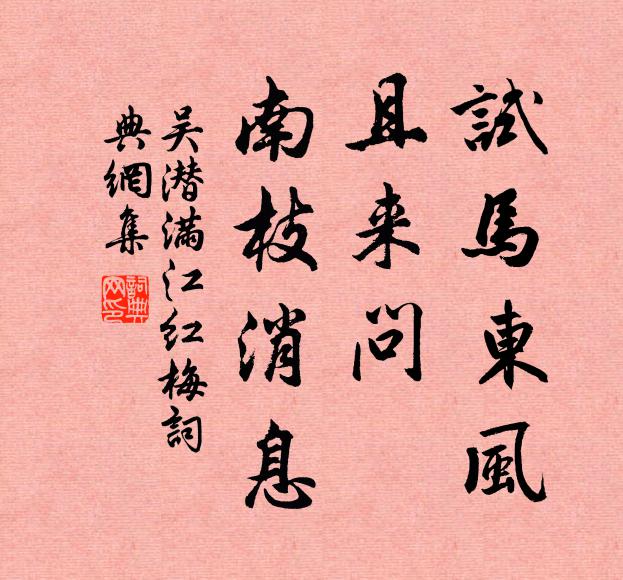 試馬東風
且来問
南枝消息
吴潜满江红梅詞
典網集
詞典
网印